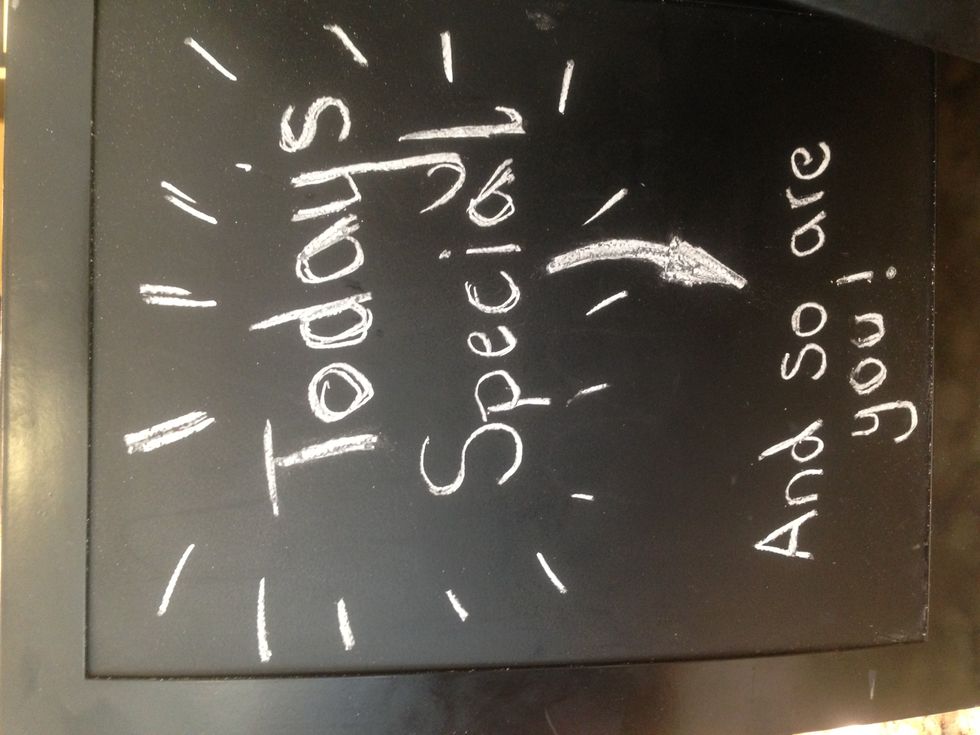 Todays
Special
And So are
you!